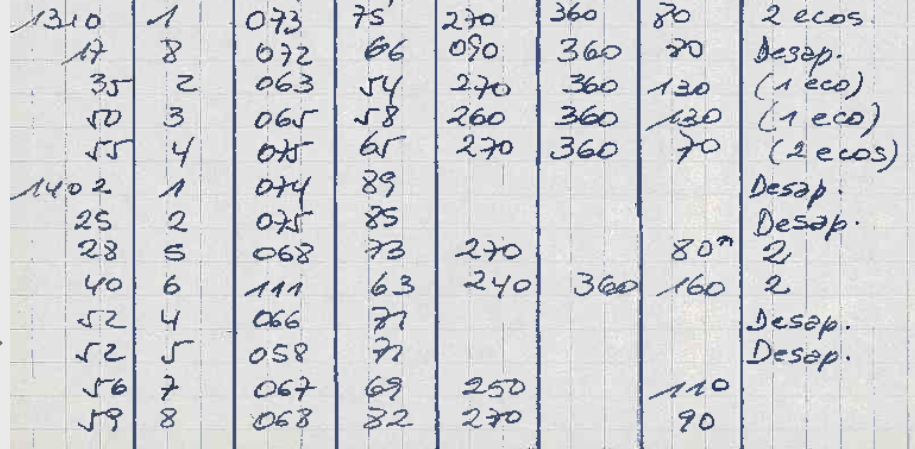 1310 1 073 75 270 360 80 2 ecos.
17 8 072 66 090 360 70 Desap.
35 2 063 54 270 360 130 (1 eco)
50 3 065 58 260 360 130 (1 eco)
55 4 075 65 270 360 70 (2 ecos)
1402 1 074 89 Desap.
25 2 075 85 Desap.
28 5 068 73 270 80 2
40 6 111 63 240 360 160 2
52 4 066 71 Desap.
52 5 058 71 Desap.
56 7 067 69 250 110
59 8 068 82 270 90